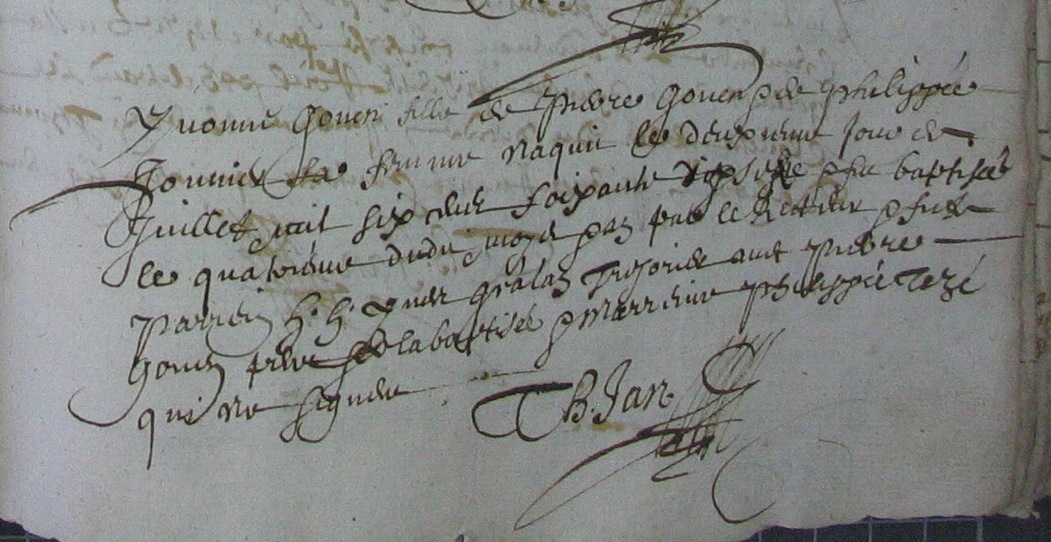 Yuonne Gouen fille de Pierre Gouen & de Philippée
sa femme naquit le deuxieme jour de
Juillet mil six cent soixante dix sept & fut baptisée
le quatorieme dudit moys par le Recteur &
Parrein h. h. Yues tresorier auec Pierre
Gouen frere de la baptisée & Marreine Philippée
qui ne signent
B Jan